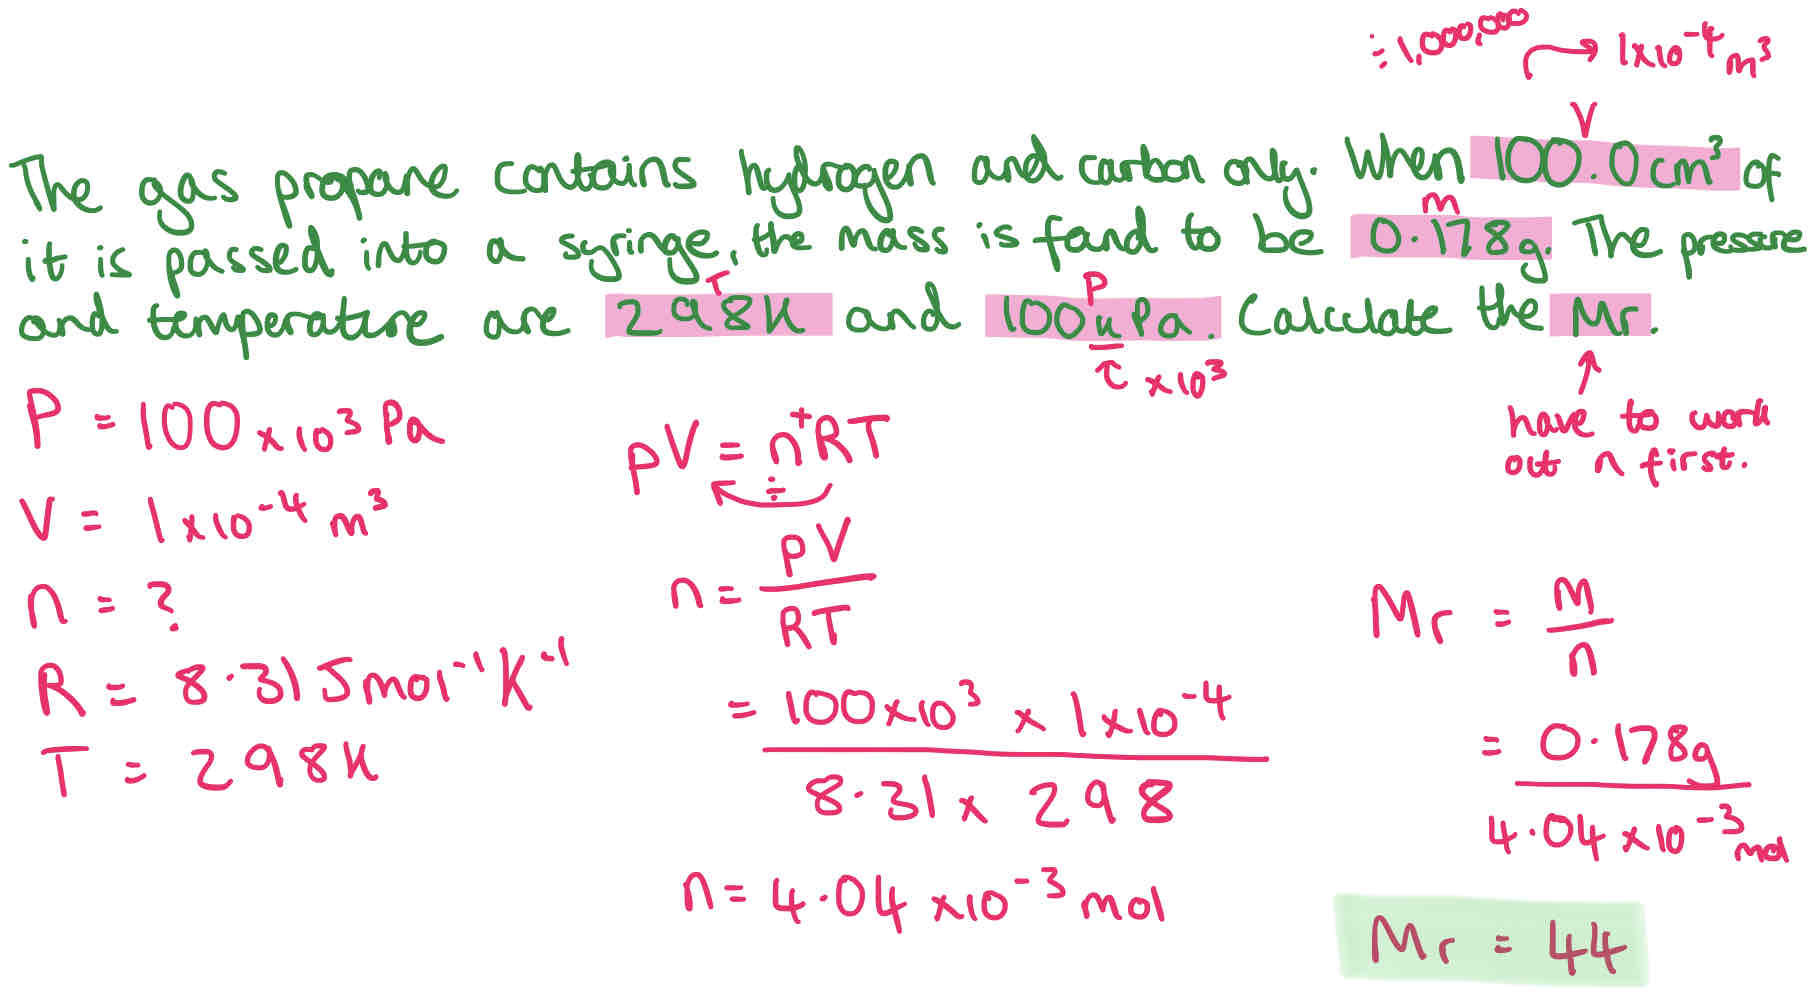 ÷1,000,000 → 1x10⁻⁴ m³
V
The gas propane contains hydrogen and carbon only. When 100.0cm³ of
m
it is passed into a syringe, the mass is fond to be 0.178g. The pressure
T P
and temperature are 298K and 100kPa. Calculate the Mr.
↑ x10³
have to work
out n first.
P = 100 x10³ Pa
V = 1x10⁻⁴ m³
n = ?
R = 8.31 J mol⁻¹ K⁻¹
T = 298K
pV = n⁺RT
÷
n = pV
RT
= 100x10³ x 1x10⁻⁴
8.31 x 298
n = 4.04 x10⁻³ mol
Mr = m
n
= 0.178g
4.04 x10⁻³ mol
Mr = 44